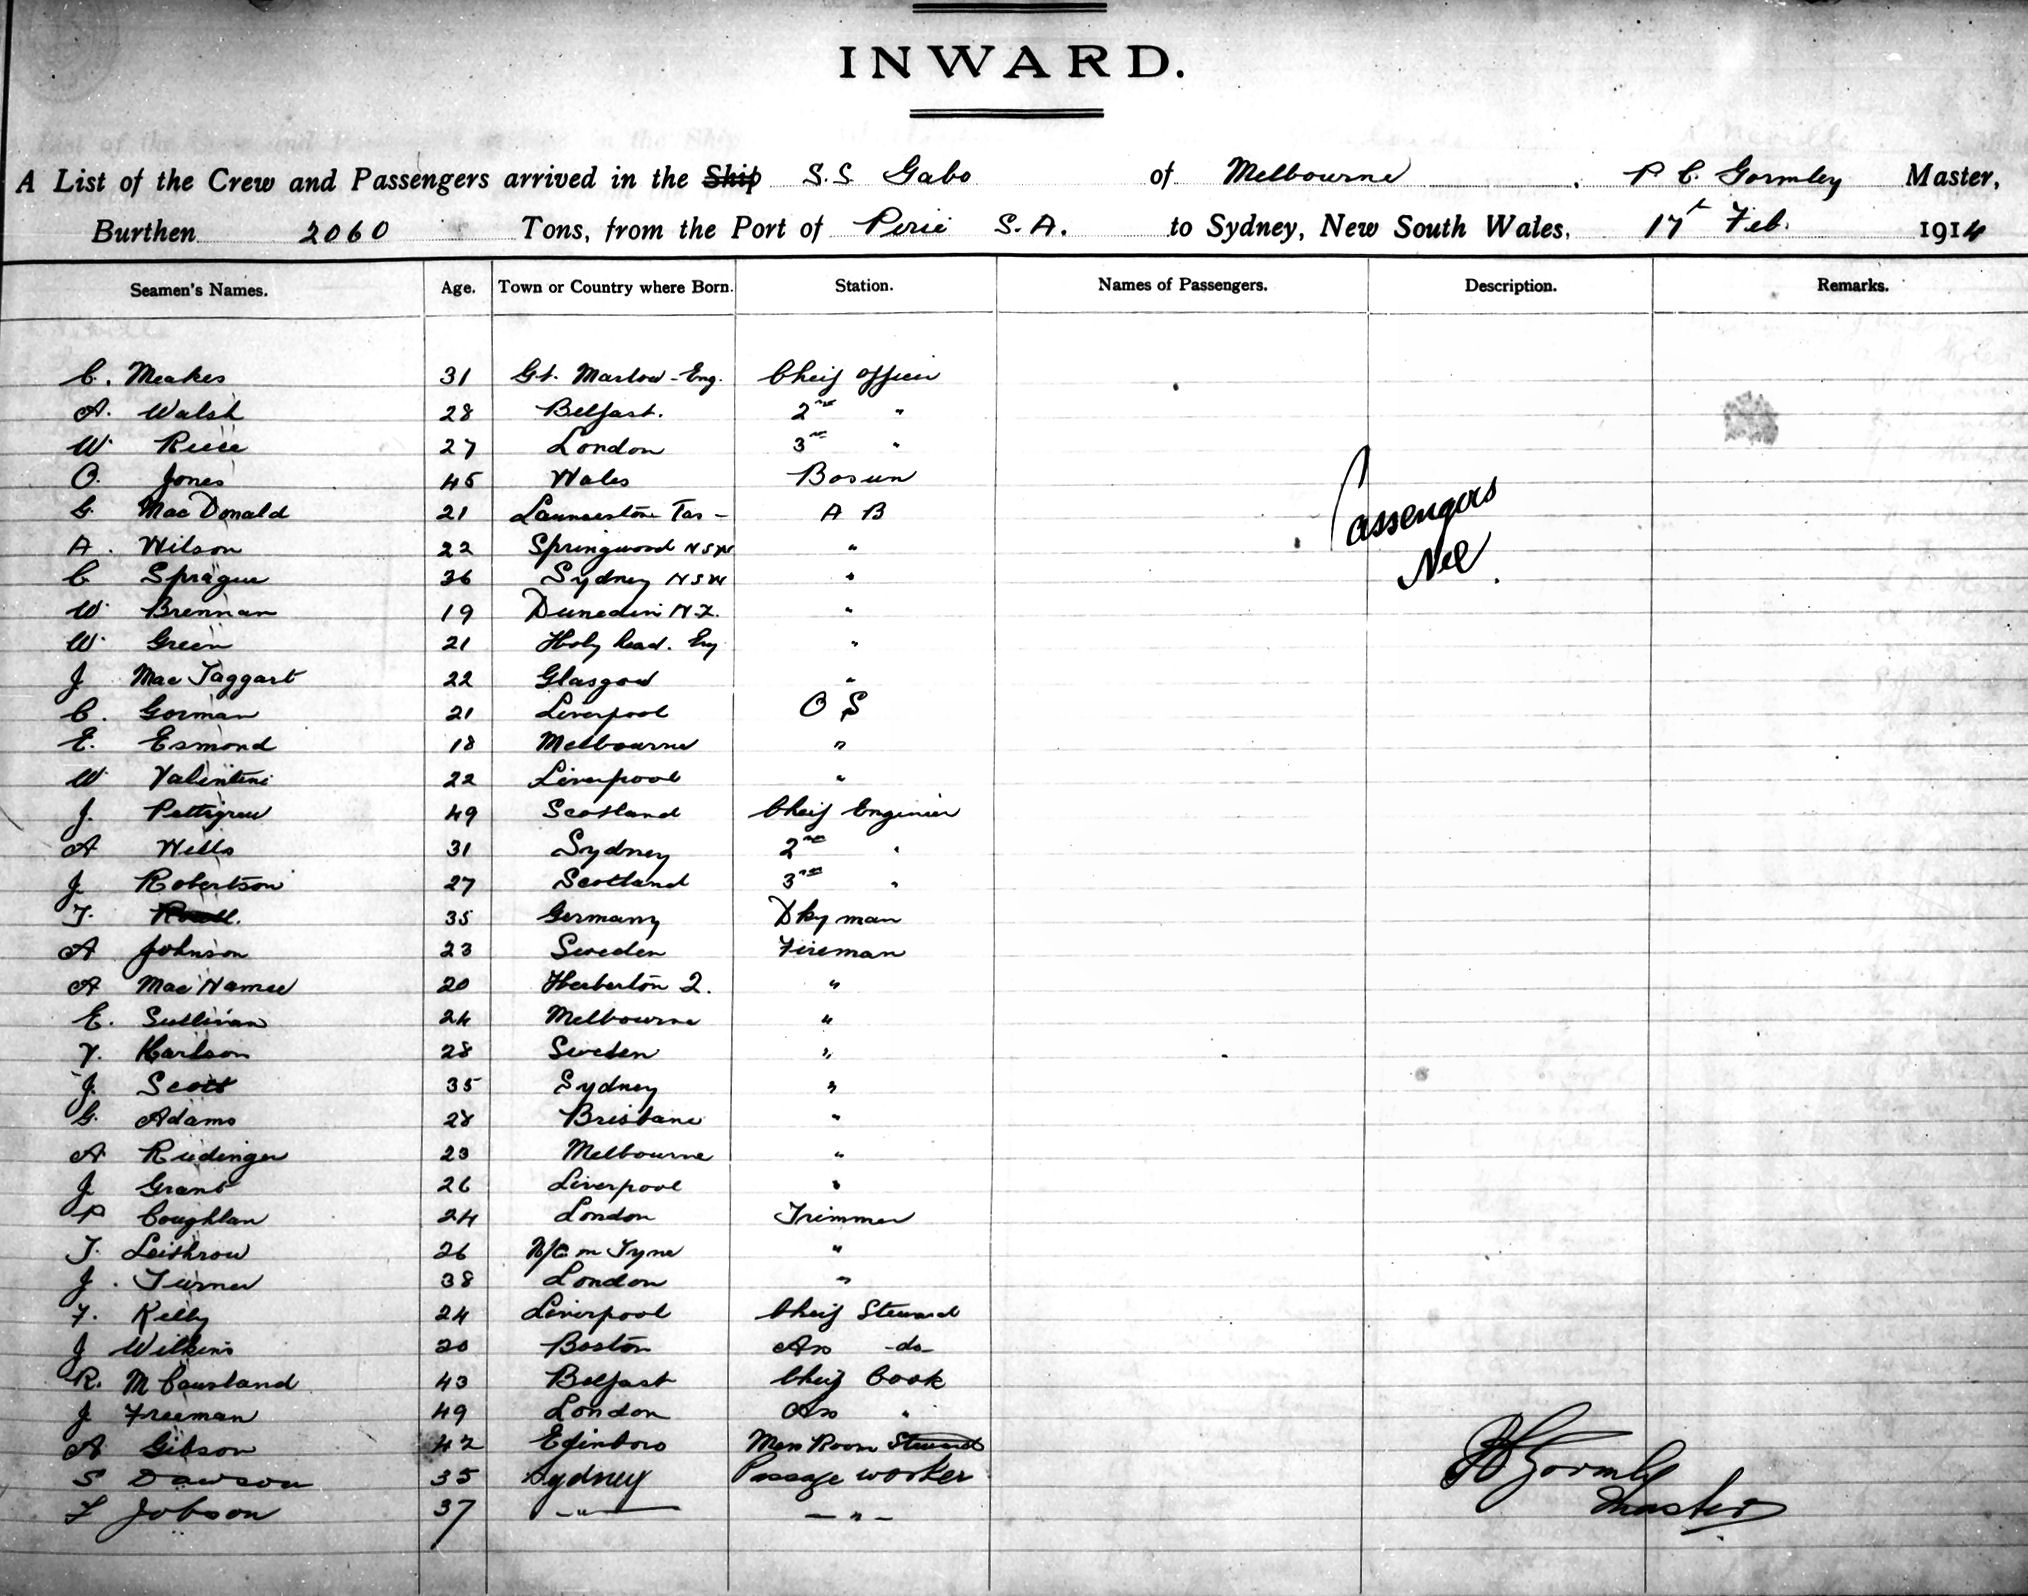 INWARD.
A List of the Crew and Passengers arrived in the Ship S.S Gabo of Melbourne, P. C. Gormley Master,
Burthen 2060 Tons, from the Port of Pirie S.A. to Sydney, New South Wales, 17th Feb. 1914
Seamen's Names. Age. Town or Country where Born. Station. Names of Passengers. Description. Remarks.
C. Meakes 31 Gt. Marlow - Eng. Cheif Officer
A. Walsh 28 Belfast. 2nd "
W. Reece 27 London 3rd "
O. Jones 45 Wales Bosun
G. MacDonald 21 Launceston Tas - A B
Passengers
A. Wilson 22 Springwood NSW "
Nil.
C Sprague 36 Sydney NSW "
W. Brennan 19 Dunedin N.Z. "
W. Green 21 Holy head. Eng "
J MacTaggart 22 Glasgow "
C. Gorman 21 Liverpool O S
E. Esmond 18 Melbourne "
W Valentine 22 Liverpool "
J. Pettigrew 49 Scotland Cheif Enginier
A Wells 31 Sydney 2nd "
J. Robertson 27 Scotland 3rd "
T. 35 Germany Dky man
A Johnson 23 Sweden Fireman
A MacNamee 20 Herberton Q. "
E. Sullivan 24 Melbourne "
V. Karlson 28 Sweden "
J. Scott 35 Sydney "
G. Adams 28 Brisbane "
A. Riedinger 23 Melbourne "
J Grant 26 Liverpool "
P Coughlan 24 London Trimmer
T. Leithrow 26 N/C on Tyne "
J. Turner 38 London "
F. Kelly 24 Liverpool Cheif Steward
J Wilkins 20 Boston Ass -do-
R. McCausland 43 Belfast Cheif Cook
J Freeman 49 London Ass "
A Gibson 42 Edinboro Mess Room Steward
S Dawson 35 Sydney Passage worker
P C Gormley
Master
T Jobson 37 -"- -"-